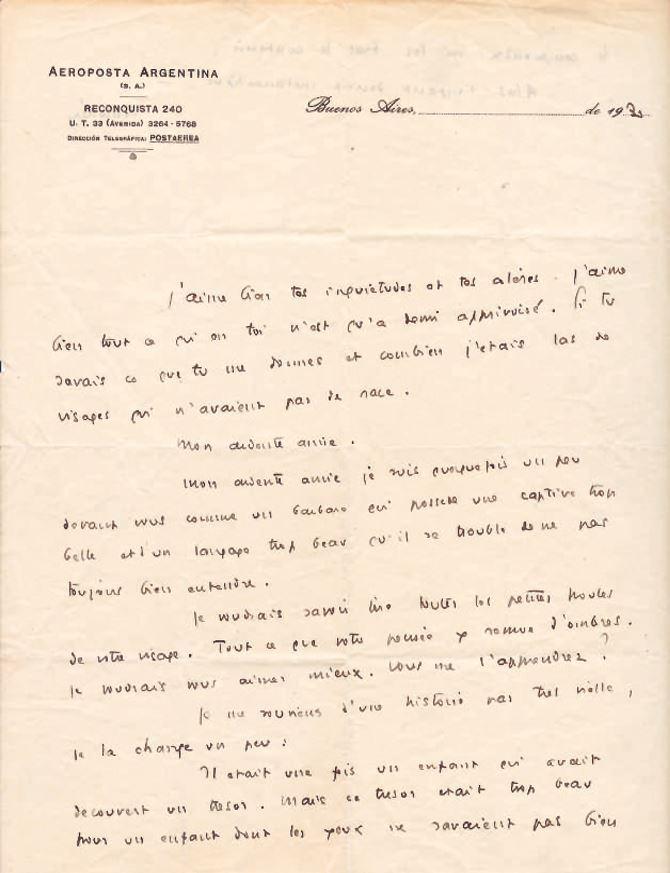 AEROPOSTA ARGENTINA
(S. A.)
RECONQUISTA 240
U. T. 33 (AVENIDA) 3264 - 5768
DIRECCIÓN TELEGRÁFICA: POSTAEREA
Buenos Aires, de 1930
J'aime bien tes inquietudes et tes colères. J'aime
bien tout ce qui en toi n'est qu'a demi apprivoisé. Si tu
savais ce que tu me donnes et combien j'etais las de
visages qui n'avaient pas de race.
Mon ardente amie.
Mon ardente amie je suis quelquefois un peu
devant vous comme un barbare qui possede une captive trop
belle et d'un langage trop beau qu'il se trouble de ne pas
toujours bien entendre.
Je voudrais savoir lire toutes les petites houles
de votre visage. Tout ce que votre pensée y remue d'ombres.
Je voudrais vous aimer mieux. Vous me l'apprendrez ?
Je me souviens d'une histoire pas tres vieille,
je la change un peu :
Il etait une fois un enfant qui avait
decouvert un tresor. Mais ce tresor etait trop beau
pour un enfant dont les yeux ne savaient pas bien